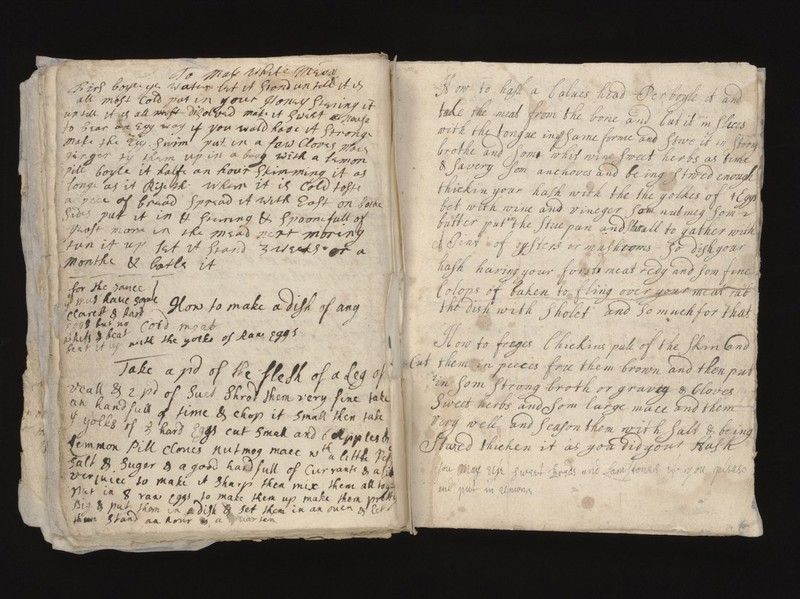 To Mak White Mead
First boyle ye Water let it stand untell it is
all most Cold put in your Honey Stiring it
untill it is all disolved make it Sweet
to bear an Egg way if you wald have it Strong
make the Egg Swim put in a faw Cloves Mace
ty them up in a bag with a lemon
pill boyle it halfe an hour skimming it as
longe as it Riseth when it is Cold toste
a pece of bread spread it with East on both
sides put it in & Spoonefull of
more in the mead next moring
tun it up let it stand 3 weeks or a
monthe & botle it
for the sauce
must have some
Claret & hard
eggs but no
whits & beat
How to make a dish of any
Cold meat
with the yolks of Raw eggs
Take a pd of the flesh of a Leg of
veall & 2 pd of Suet Shred them very fine take
an handfull of time & chop it Small then take
4 yolks of 3 hard Eggs cut Small and 6 apples &
lemmon Pill Cloves nutmeg mace wth a little
Salt & Suger & a good handfull of Currants &
verjuice to make it sharp then mix them all
Put in 8 raw eggs to make them up make them pretty
Big & put them in a dish & set them in an oven & let
them stand an hour & a quarter
How to hash a Calues head Perboyle it and
take the meat from the bone and Cut it in slices
with the tongue in same forme and Stwe it in strong
brothe and som whit wine sweet herbs as time
& savery som anchoves and being stwed enough
thickin your hash with the the yoldes of Eggs
bet with wine and vineger som nutmeg som
butter put in the stue pan and shall to gather with
a Pint of oysters or mashrooms So dish your
hash having your forst meat redy and som fine
Colops of baken to fling over your meat rub
the dish with Sholet and so much for that
How to freges Chickins pull of the skin and
Cut them in peeces free them brown and then put
in som strong broth or gravey & Cloves
sweet herbs and som large mace and them
very well and season them with salt & being
Stwed thicken it as you did your Hash
you May use sweet breds and if you please
and put in